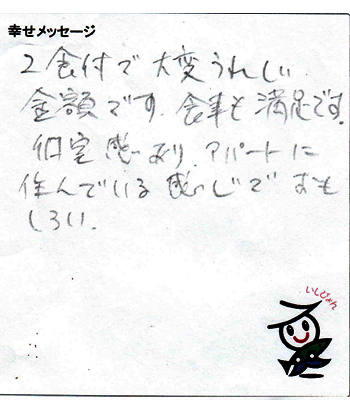 幸せメッセージ
2食付で大変うれしい
金額です。食事も満足です。
個室感あり、アパートに
住んでいる感じでおも
しろい。
いしぴょん